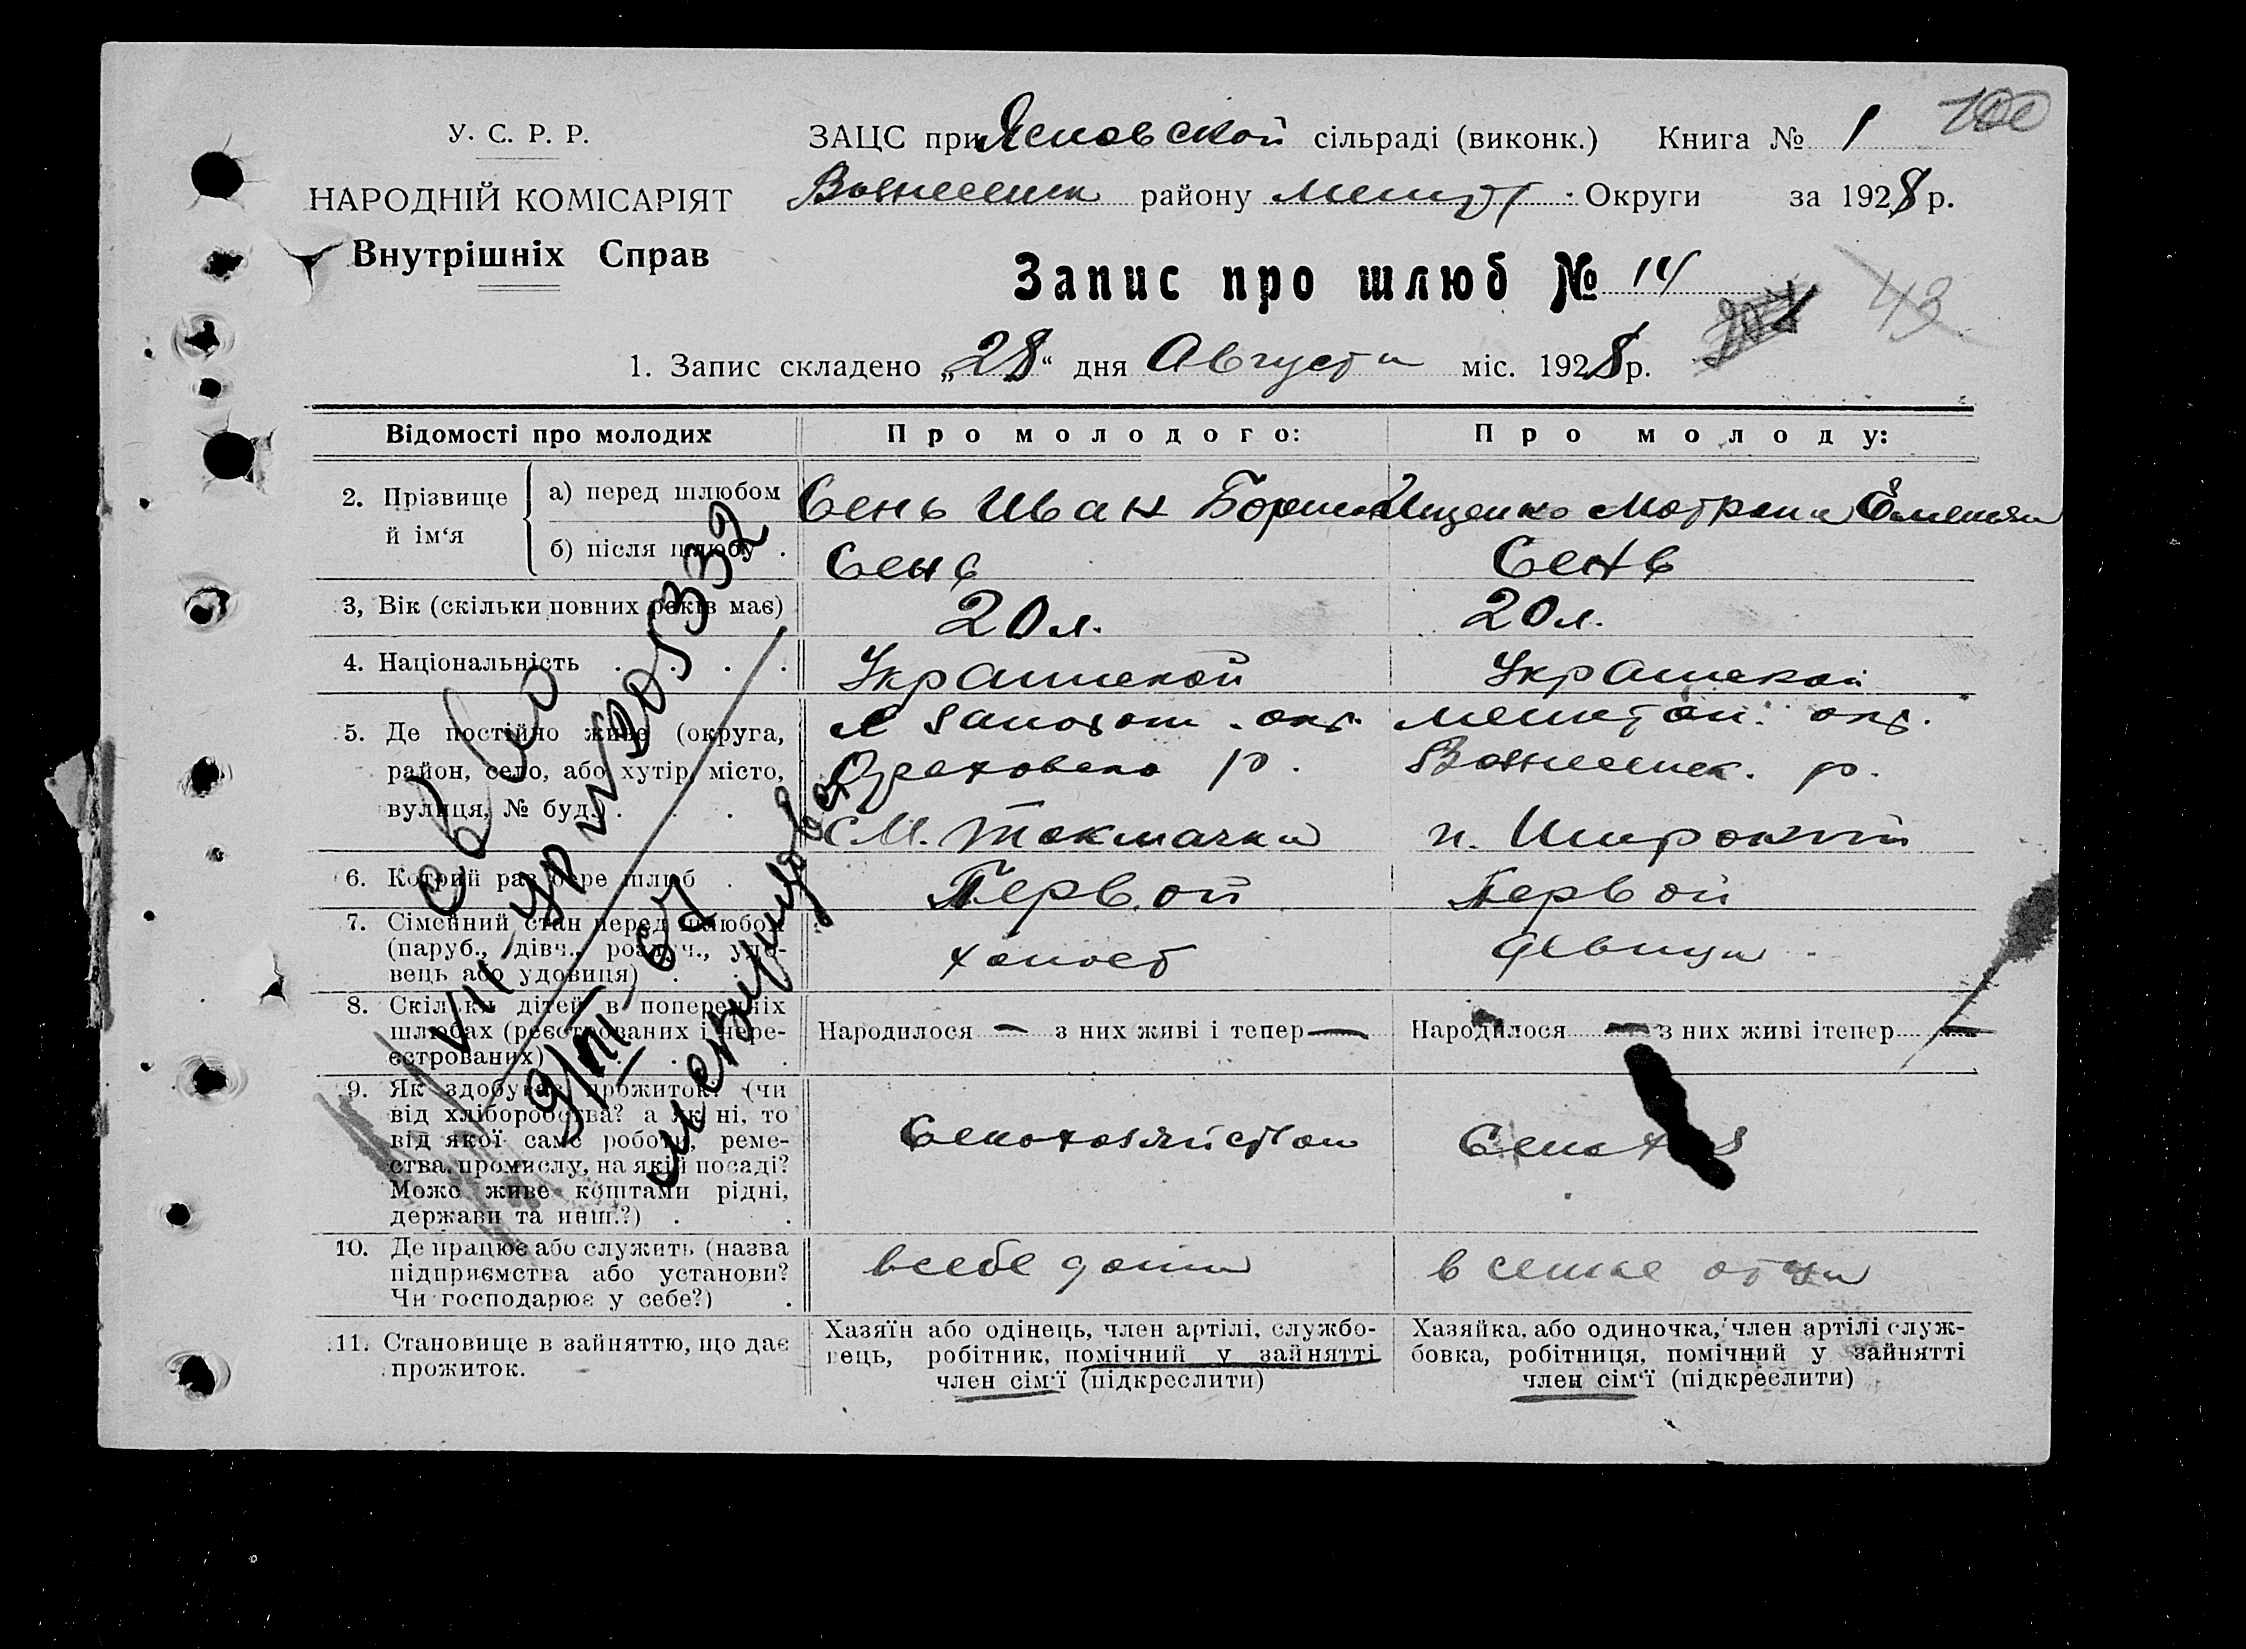 У. С. Р. Р.
НАРОДНІЙ КОМІСАРІЯТ
Внутрішніх Справ
ЗАЦС при Ясновской сільраді (виконк.) Книга № 1 100
Вознесенк району Мелит. Округи за 1928 р.
Запис про шлюб № 14
43
1. Запис складено „28“ дня Августа міс. 1928 р.
Відомості про молодих Про молодого: Про молоду:
2. Прізвище й ім‘я
а) перед шлюбом Сень Иван Ищенко Матрена
б) після шлюбу . Сень Сень
3, Вік (скільки повних років має) 20 л. 20 л.
4. Національність . . . . Украинской Украинской
5. Де постійно живе (округа,
район, село, або хутір, місто,
вулиця, № буд. . . .
Запорож. окр.
Ореховско р.
с М. Токмачка
Мелитоп. окр.
Вознесенск. р.
п. Широкий
6. Котрий раз бере шлюб . Первой Первой
7. Сімейний стан перед шлюбом
(паруб., дівч., розлуч., удо-
вець або удовиця) . .
холост девица
8. Скільки дітей в попередніх
шлюбах (реєстрованих і нере-
єстрованих) . . .
Народилося — з них живі і тепер —
Народилося — з них живі ітепер —
9. Як здобуває прожиток? (чи
від хліборобства? а як ні, то
від якої саме роботи, реме-
ства, промислу, на якій посаді?
Може живе коштами рідні,
держави та инш.?) . .
Селохозяйством Селохоз
10. Де працює або служить (назва
підприємства або установи?
Чи господарює у себе?) .
в себе дома в семье отца
11. Становище в зайняттю, що дає
прожиток.
Хазяїн або одінець, член артілі, службо-
вець, робітник, помічний у зайнятті
член сім‘ї (підкреслити)
Хазяйка, або одиночка, член артілі служ-
бовка, робітниця, помічний у зайнятті
член сім‘ї (підкреслити)